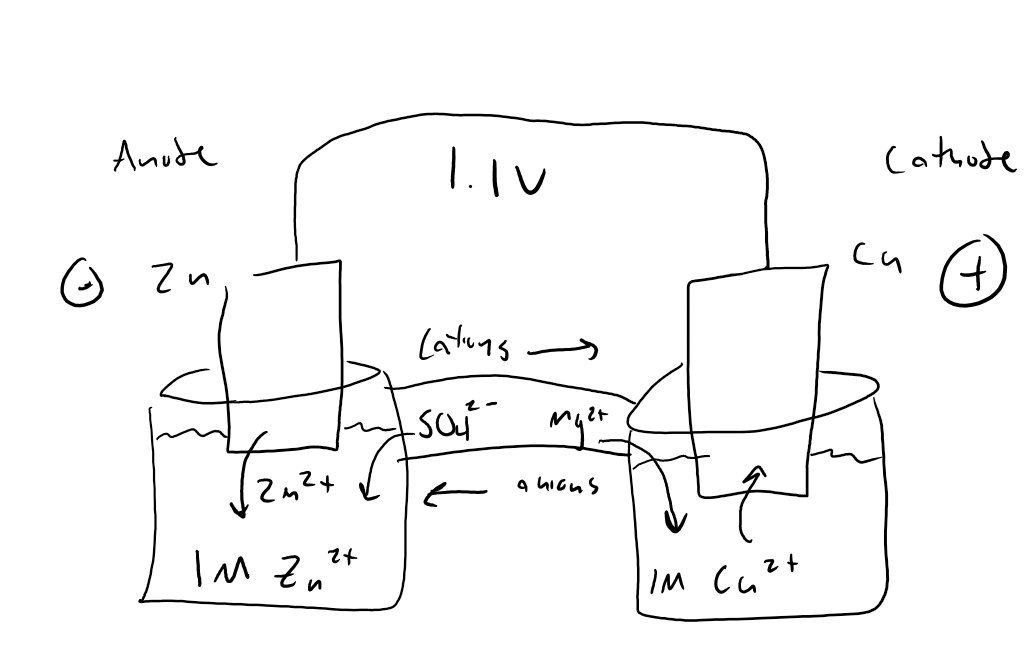 Anode
Cathode
1.1V
⊖ Zn
Cu ⊕
Cations →
SO₄²⁻
Mg²⁺
Zn²⁺
← anions
1M Zn²⁺
1M Cu²⁺